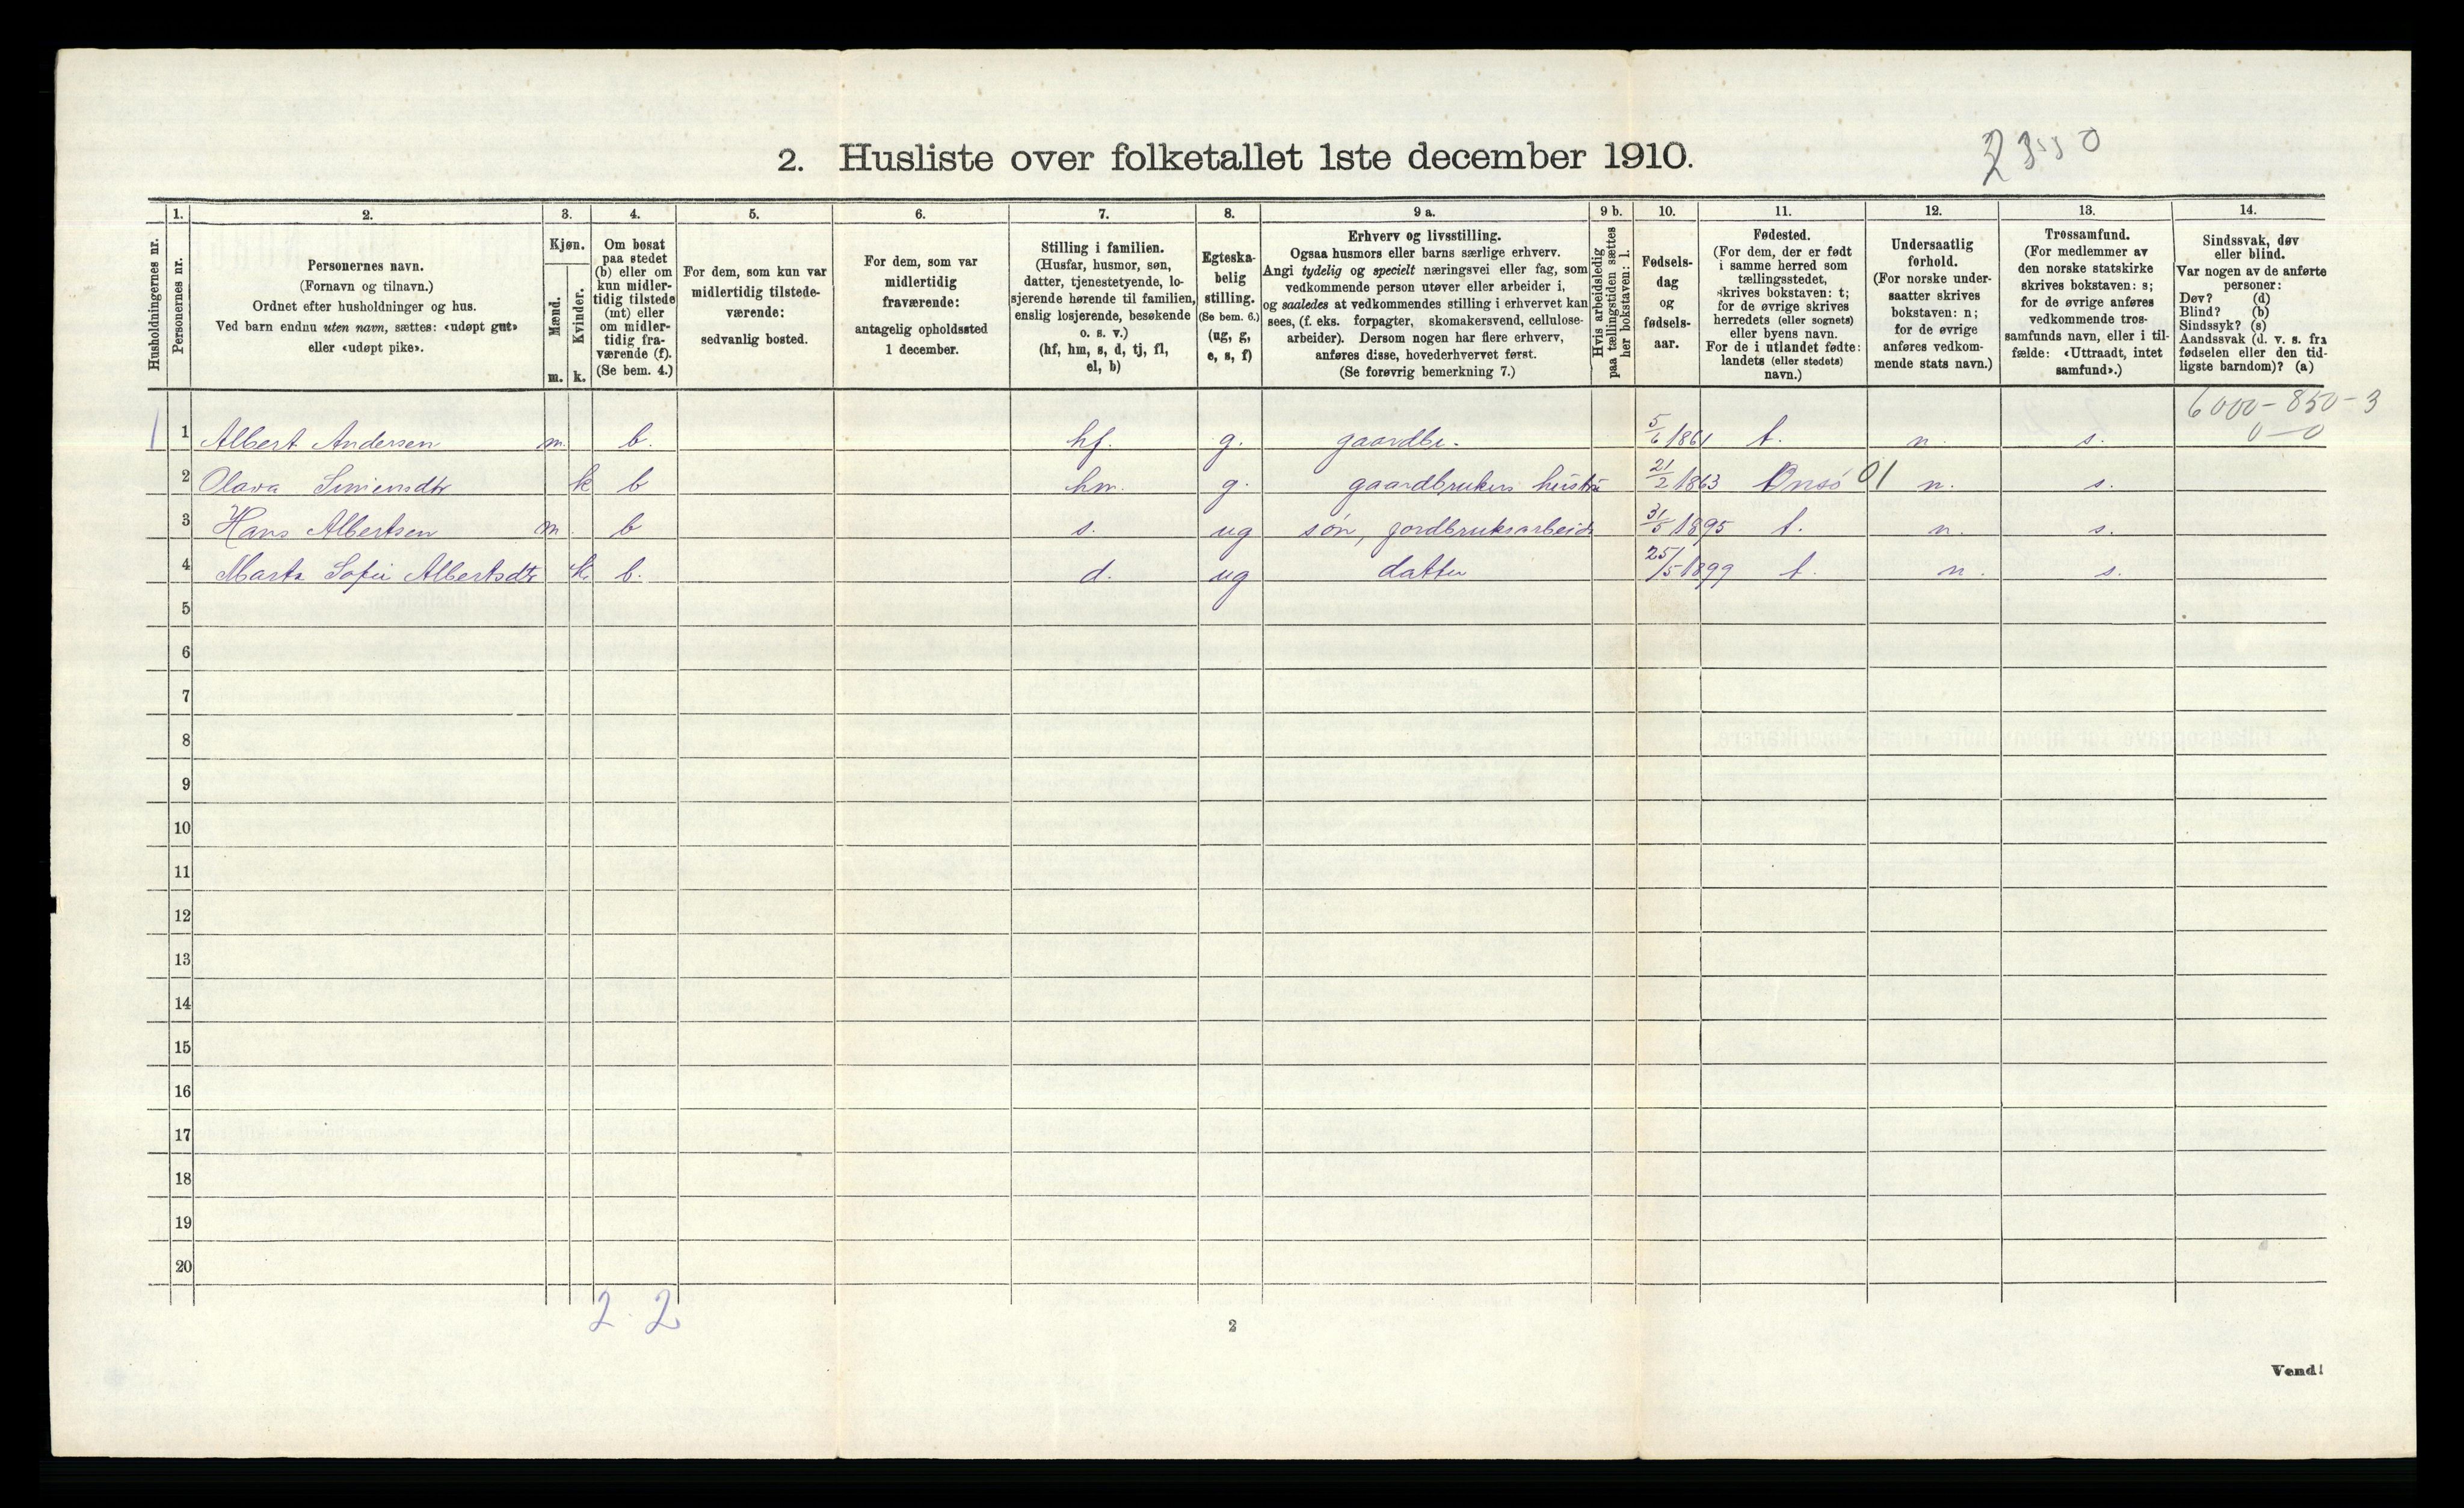 2. Husliste over folketallet 1ste december 1910.
1. 2. 3. 4. 5. 6. 7. 8. 9 a. 9 b. 10. 11. 12. 13. 14.
Husholdningernes nr.
Personernes nr.
Personernes navn.
(Fornavn og tilnavn.)
Ordnet efter husholdninger og hus.
Ved barn endnu uten navn, sættes: «udøpt gut»
eller «udøpt pike».
Kjøn.
Mænd.
Kvinder.
m. k.
Om bosat
paa stedet
(b) eller om
kun midler-
tidig tilstede
(mt) eller
om midler-
tidig fra-
værende (f).
(Se bem. 4.)
For dem, som kun var
midlertidig tilstede-
værende:
sedvanlig bosted.
For dem, som var
midlertidig
fraværende:
antagelig opholdssted
1 december.
Stilling i familien.
(Husfar, husmor, søn,
datter, tjenestetyende, lo-
sjerende hørende til familien,
enslig losjerende, besøkende
o. s. v.)
(hf, hm, s, d, tj, fl,
el, b)
Egteska-
belig
stilling.
(Se bem. 6.)
(ug, g,
e, s, f)
Erhverv og livsstilling.
Ogsaa husmors eller barns særlige erhverv.
Angi tydelig og specielt næringsvei eller fag, som
vedkommende person utøver eller arbeider i,
og saaledes at vedkommendes stilling i erhvervet kan
sees, (f. eks. forpagter, skomakersvend, cellulose-
arbeider). Dersom nogen har flere erhverv,
anføres disse, hovederhvervet først.
(Se forøvrig bemerkning 7.)
Hvis arbeidsledig
paa tællingstiden sættes
her bokstaven: l.
Fødsels-
dag
og
fødsels-
aar.
Fødested.
(For dem, der er født
i samme herred som
tællingsstedet,
skrives bokstaven: t;
for de øvrige skrives
herredets (eller sognets)
eller byens navn.
For de i utlandet fødte:
landets (eller stedets)
navn.)
Undersaatlig
forhold.
(For norske under-
saatter skrives
bokstaven: n;
for de øvrige
anføres vedkom-
mende stats navn.)
Trossamfund.
(For medlemmer av
den norske statskirke
skrives bokstaven: s;
for de øvrige anføres
vedkommende tros-
samfunds navn, eller i til-
fælde: «Uttraadt, intet
samfund».)
Sindssvak, døv
eller blind.
Var nogen av de anførte
personer:
Døv? (d)
Blind? (b)
Sindssyk? (s)
Aandssvak (d. v. s. fra
fødselen eller den tid-
ligste barndom)? (a)
6000-850-3
0-0
1 1 Albert Andersen m. b. hf. g. gaardbr. 5/6 1861 t. n. s.
2 Olava k b hm. g. gaardbrukers hustru 21/2 1863 Onsö 01 n. s.
3 Hans Albertsen m. b s. ug søn, jordbruksarbeid 31/5 1895 t. n. s.
4 Marta Sofie Albertsdtr k. b. d. ug datter 25/5 1899 t. n. s.
5
6
7
8
9
10
11
12
13
14
15
16
17
18
19
20
2 2
2
Vend!